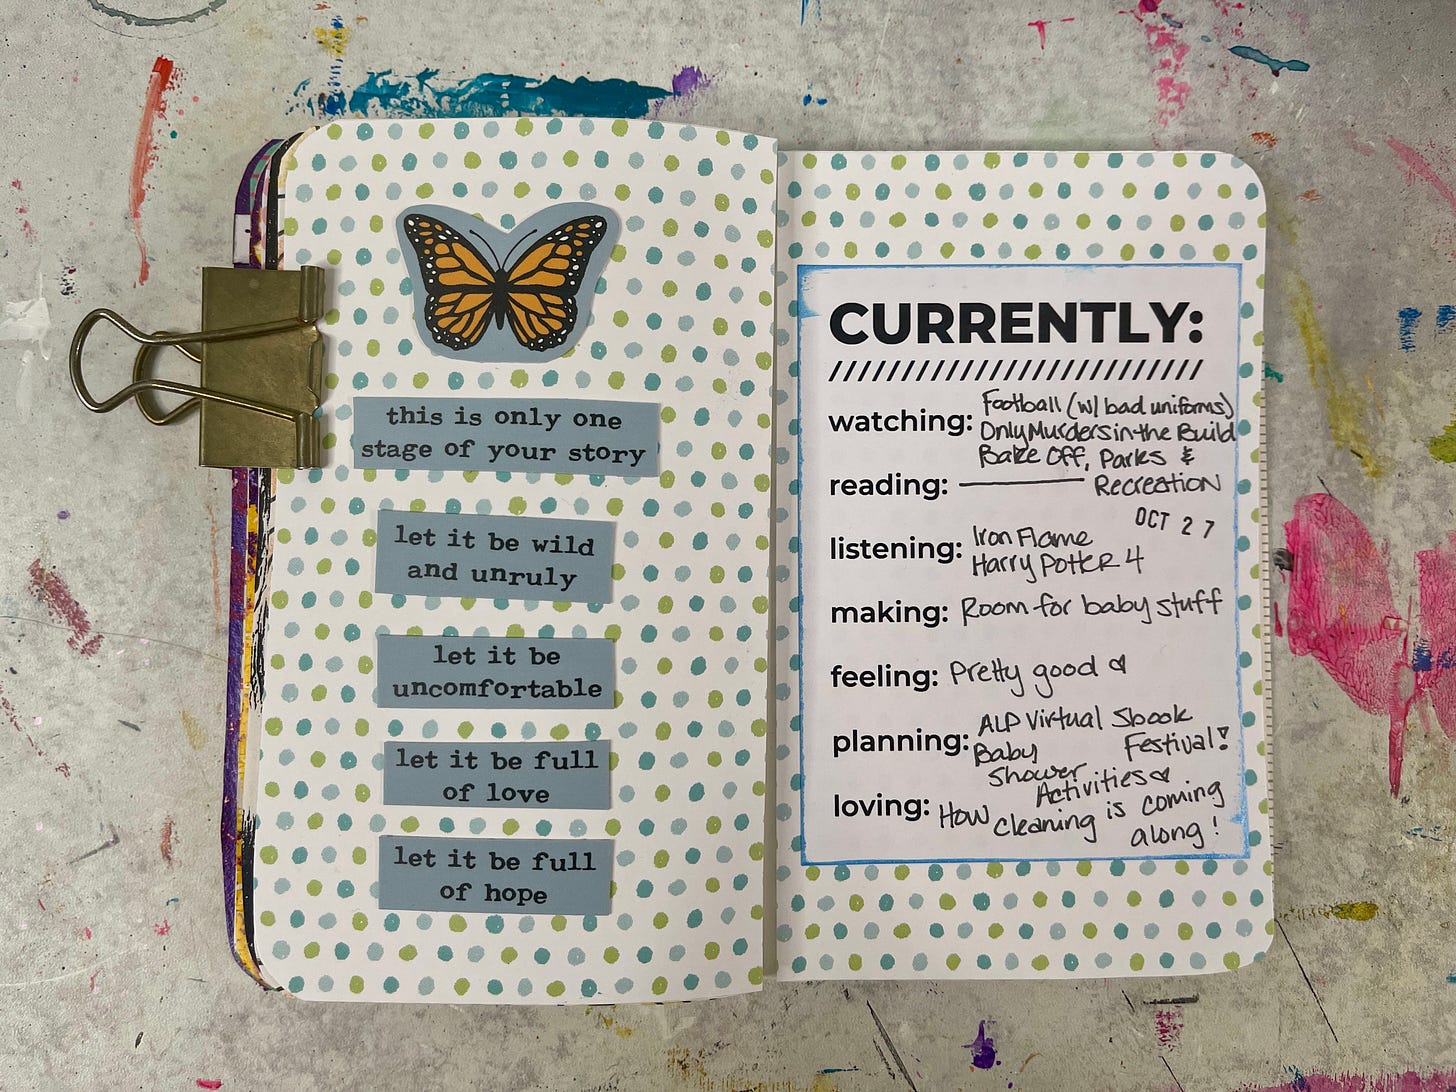 this is only one
stage of your story
let it be wild
and unruly
let it be
uncomfortable
let it be full
of love
let it be full
of hope
CURRENTLY:
watching: Football (w/ bad uniforms)
Only Murders in the Build
Bake Off, Parks &
Recreation
reading:
OCT 27
listening: Iron Flame
Harry Potter 4
making: Room for baby stuff
feeling: Pretty good
planning: ALP Virtual Sbook
Festival!
Baby
Shower
Activities
loving: How cleaning is coming
along!